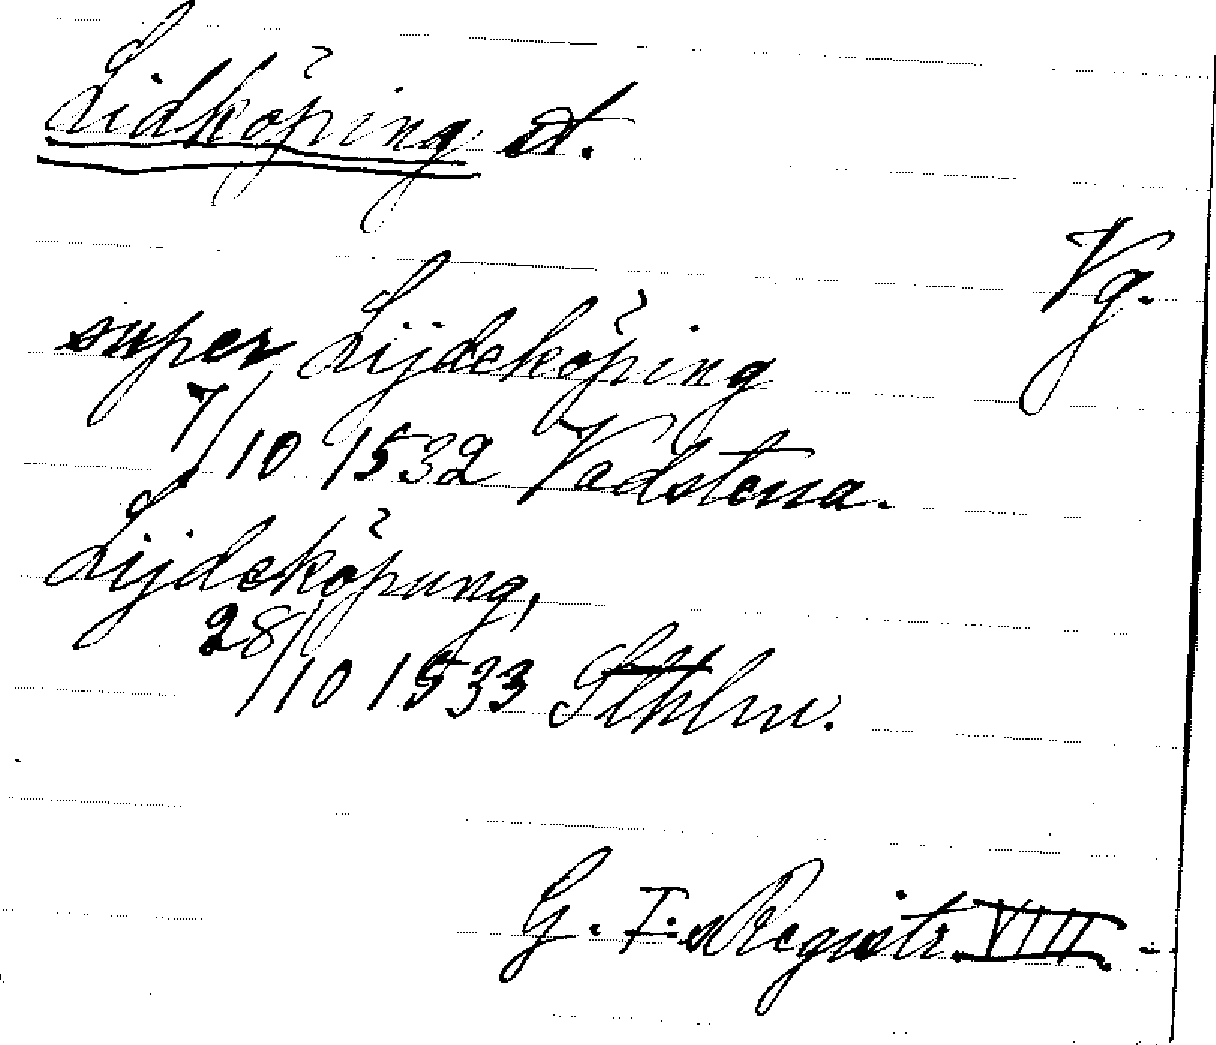 Lidköping st.
Vg.
super Lijdeköping
7/10 1532 Vadstena.
Lijdeköpung,
28/10 1533 Sthlm.
G. I:s Registr. VIII